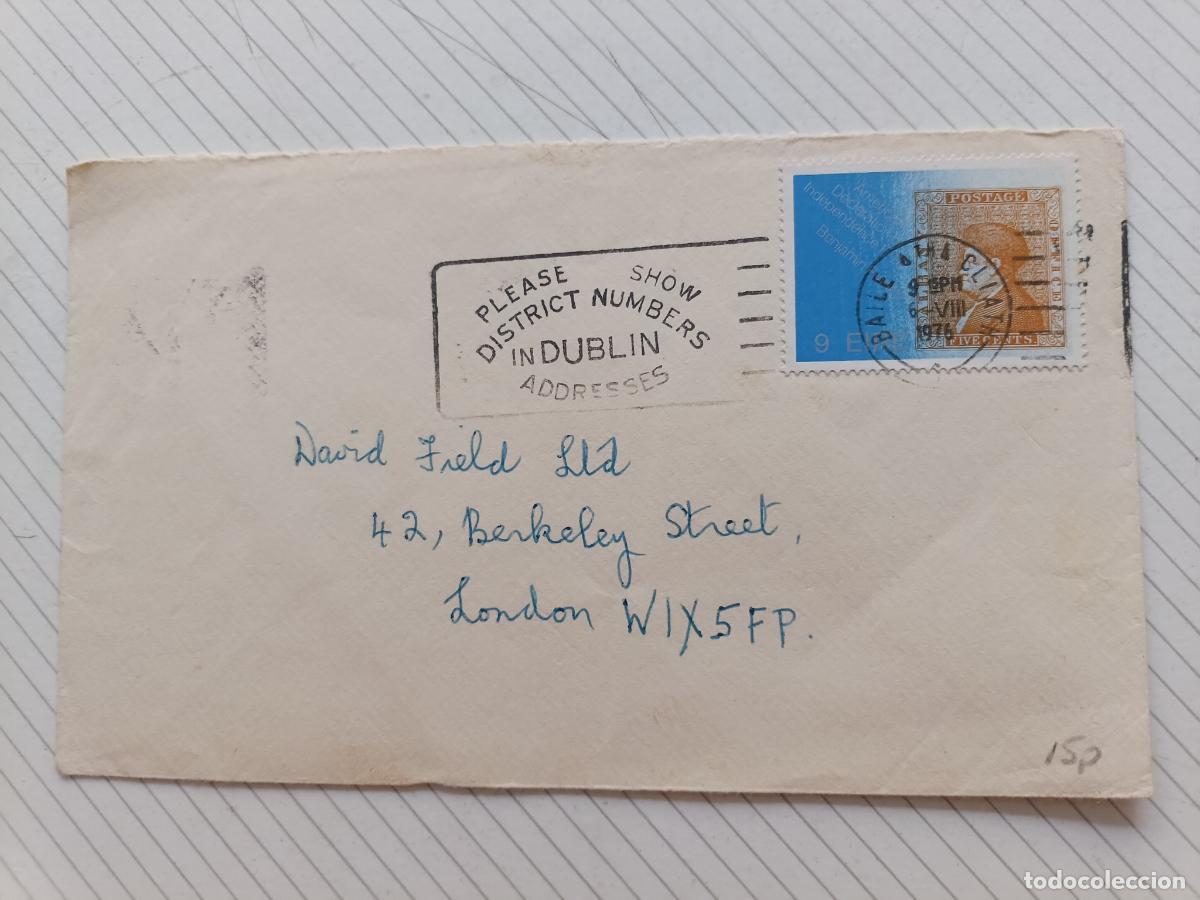 PLEASE SHOW
DISTRICT NUMBERS
IN DUBLIN
ADDRESSES
Independence
Benjamin
9 E
POSTAGE
OFFICE
FIVE CENTS.
BAILE ÁTHA CLIATH
VIII
1976
David Field Ltd
42, Berkeley Street,
London W1X5FP.
15p
todocoleccion